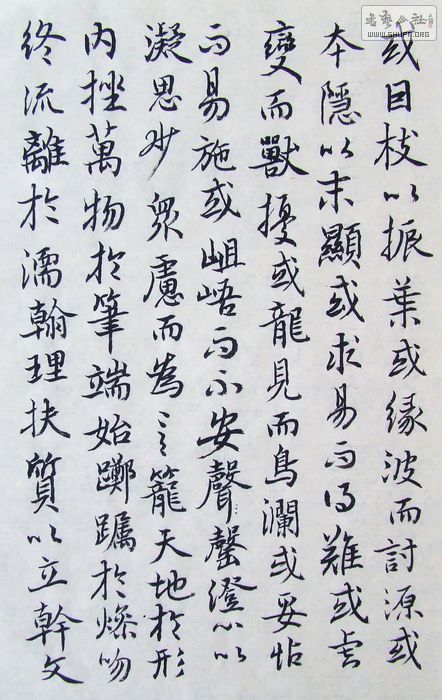 或目枝以振葉或緣波而討源或
本隱以末顯或求易而得難或虎
變而獸擾或龍見而鳥瀾或妥怗
而易施或岨峿而不安聲罄澄心以
凝思妙眾慮而為言籠天地於形
內挫萬物於筆端始躑躅於燥吻
終流離於濡翰理扶質以立幹文
書藝公社
WWW.SHUFA.ORG